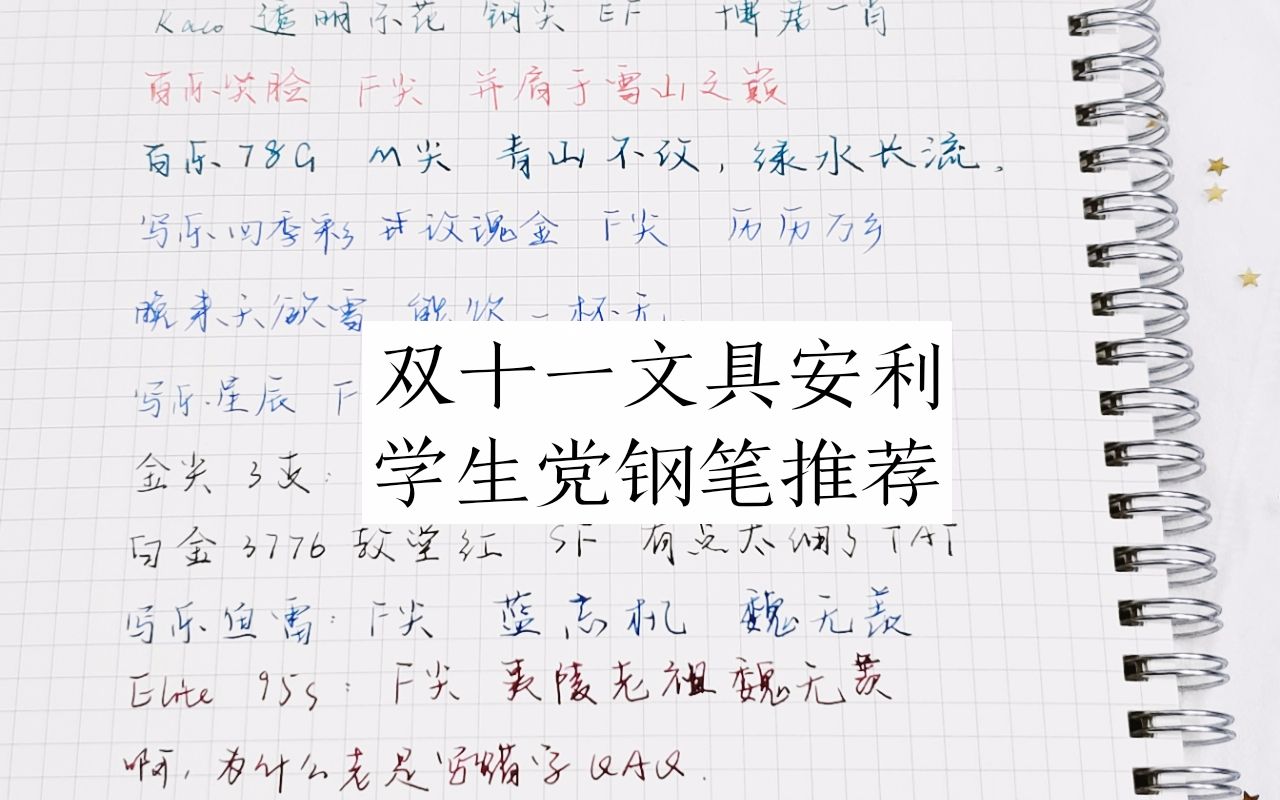 Kaco 透明示范 钢尖 EF 博君一肖
百乐笑脸 F尖 并肩于雪山之巅
百乐78G M尖 青山不改，绿水长流。
写乐四季彩 玫瑰金 F尖 历历万乡
晚来天欲雪 能饮一杯无
写乐星辰 F
双十一文具安利
学生党钢笔推荐
金尖3支：
白金3776 教堂红 SF 有点太细了TAT
写乐鱼雷：F尖 蓝忘机 魏无羡
Elite 95s：F尖 夷陵老祖魏无羡
啊，为什么老是写错字QAQ.